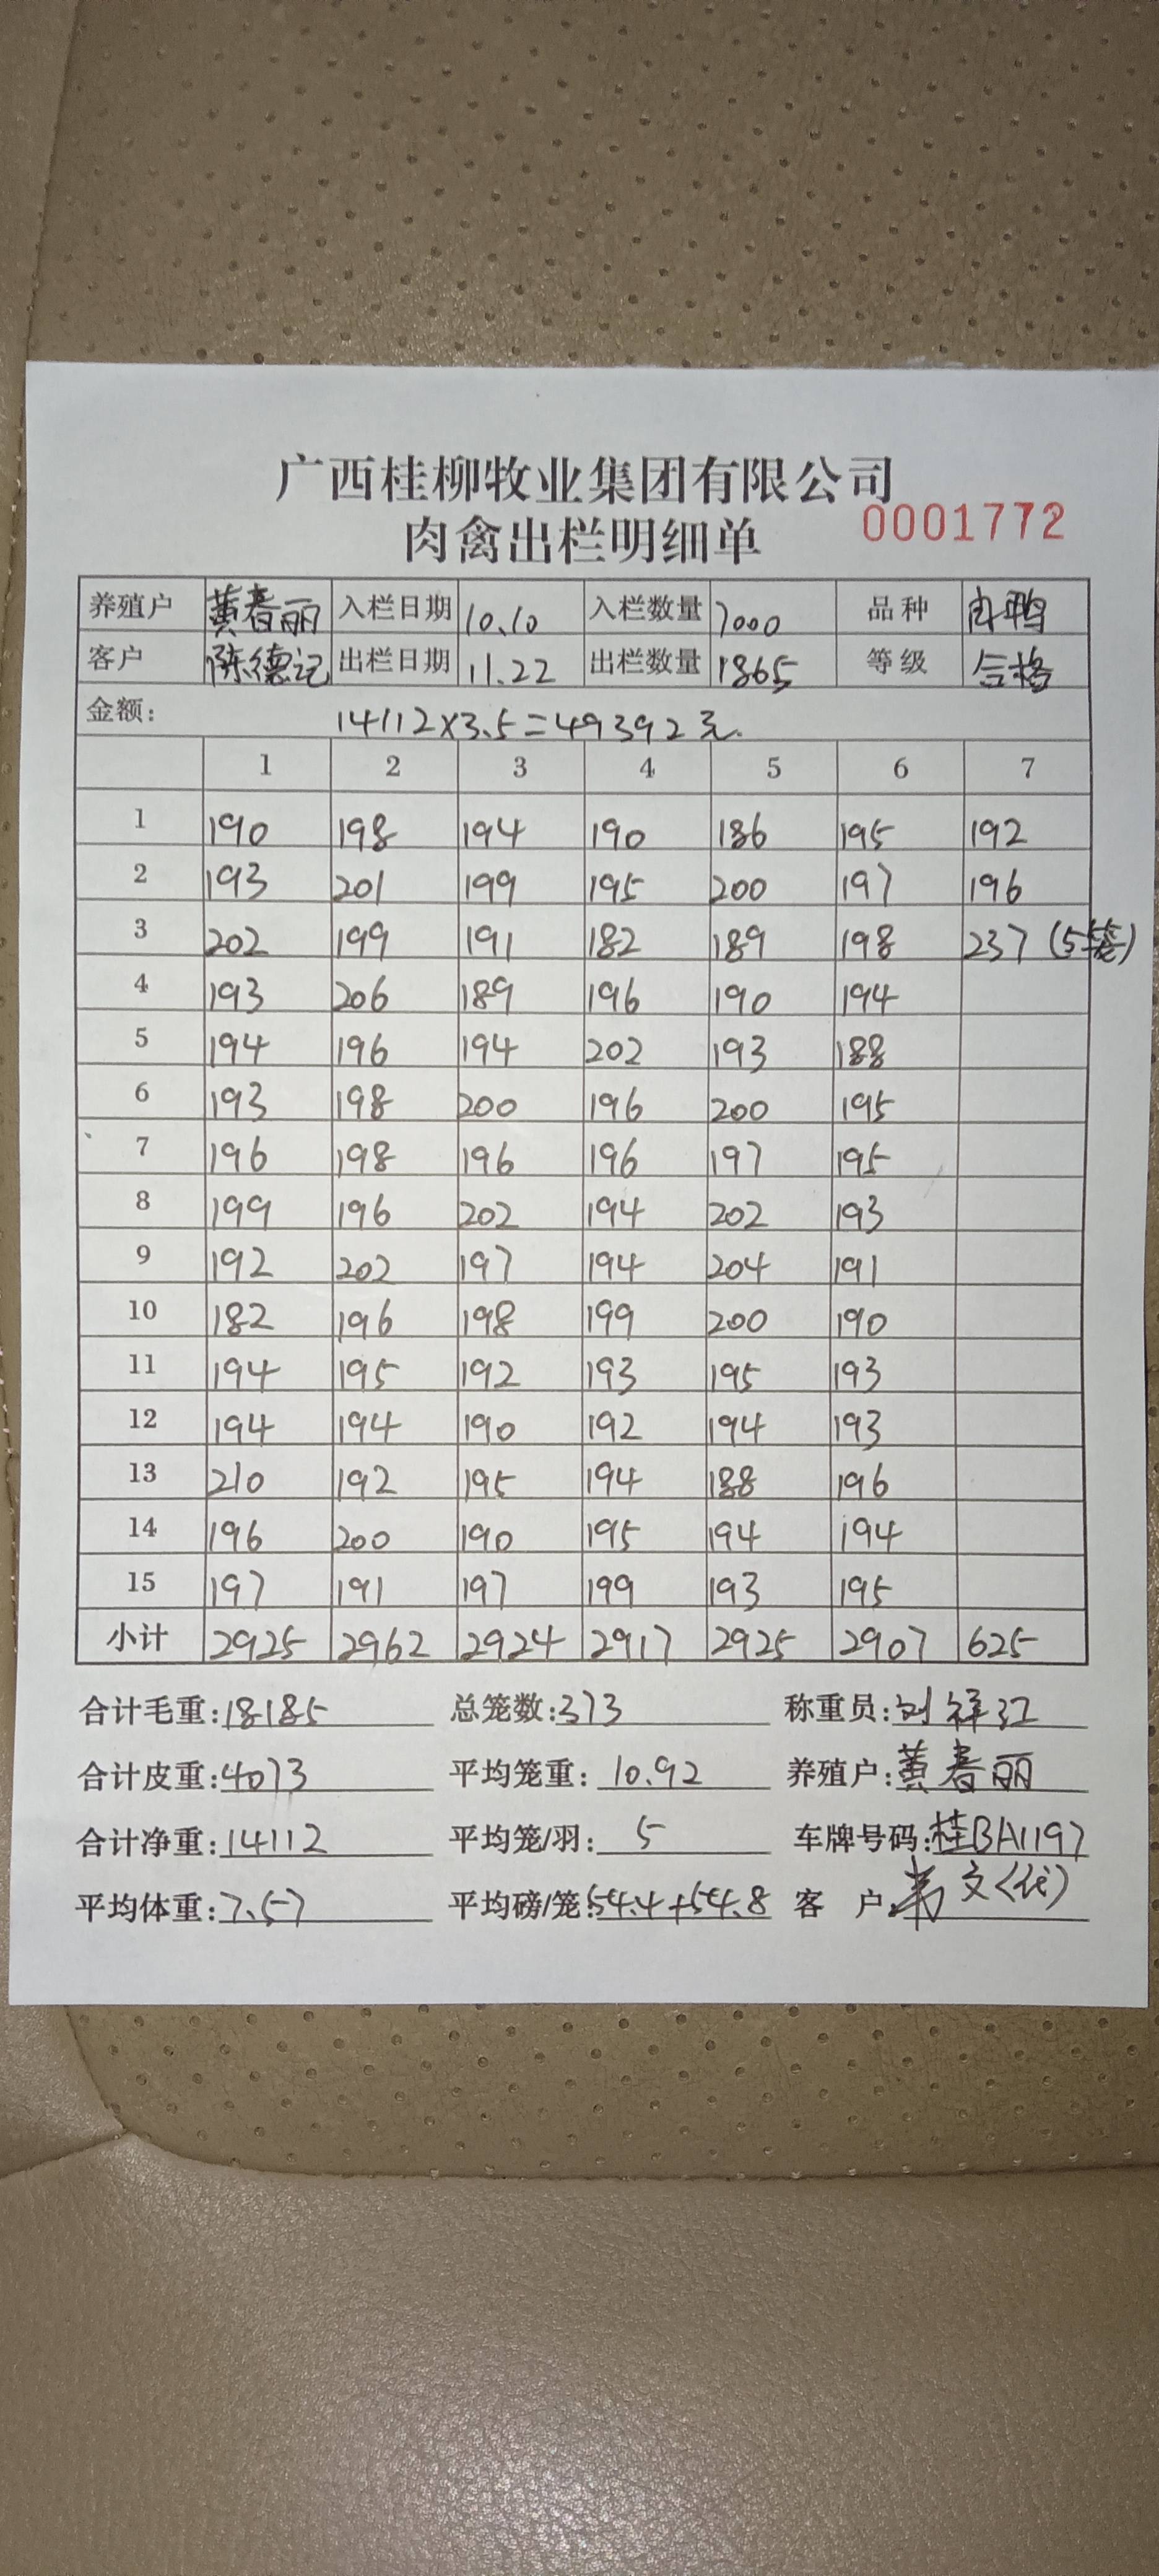 广西桂柳牧业集团有限公司
肉禽出栏明细单 0001772
养殖户 黄春丽 入栏日期 10.10 入栏数量 7000 品种 肉鸭
客户 陈德记 出栏日期 11.22 出栏数量 1865 等级 合格
金额: 14112×3.5=49392元.
1 2 3 4 5 6 7
1 190 198 194 190 186 195 192
2 193 201 199 195 200 197 196
3 202 199 191 182 189 198 237 (5笼)
4 193 206 189 196 190 194
5 194 196 194 202 193 188
6 193 198 200 196 200 195
7 196 198 196 196 197 195
8 199 196 202 194 202 193
9 192 202 197 194 204 191
10 182 196 198 199 200 190
11 194 195 192 193 195 193
12 194 194 190 192 194 193
13 210 192 195 194 188 196
14 196 200 190 195 194 194
15 197 191 197 199 193 195
小计 2925 2962 2924 2917 2925 2907 625
合计毛重:18185 总笼数:373 称重员:刘祥江
合计皮重:4073 平均笼重:10.92 养殖户:黄春丽
合计净重:14112 平均笼/羽:5 车牌号码:桂BA1197
平均体重:7.57 平均磅/笼:54.4+54.8 客户:韦文(代)